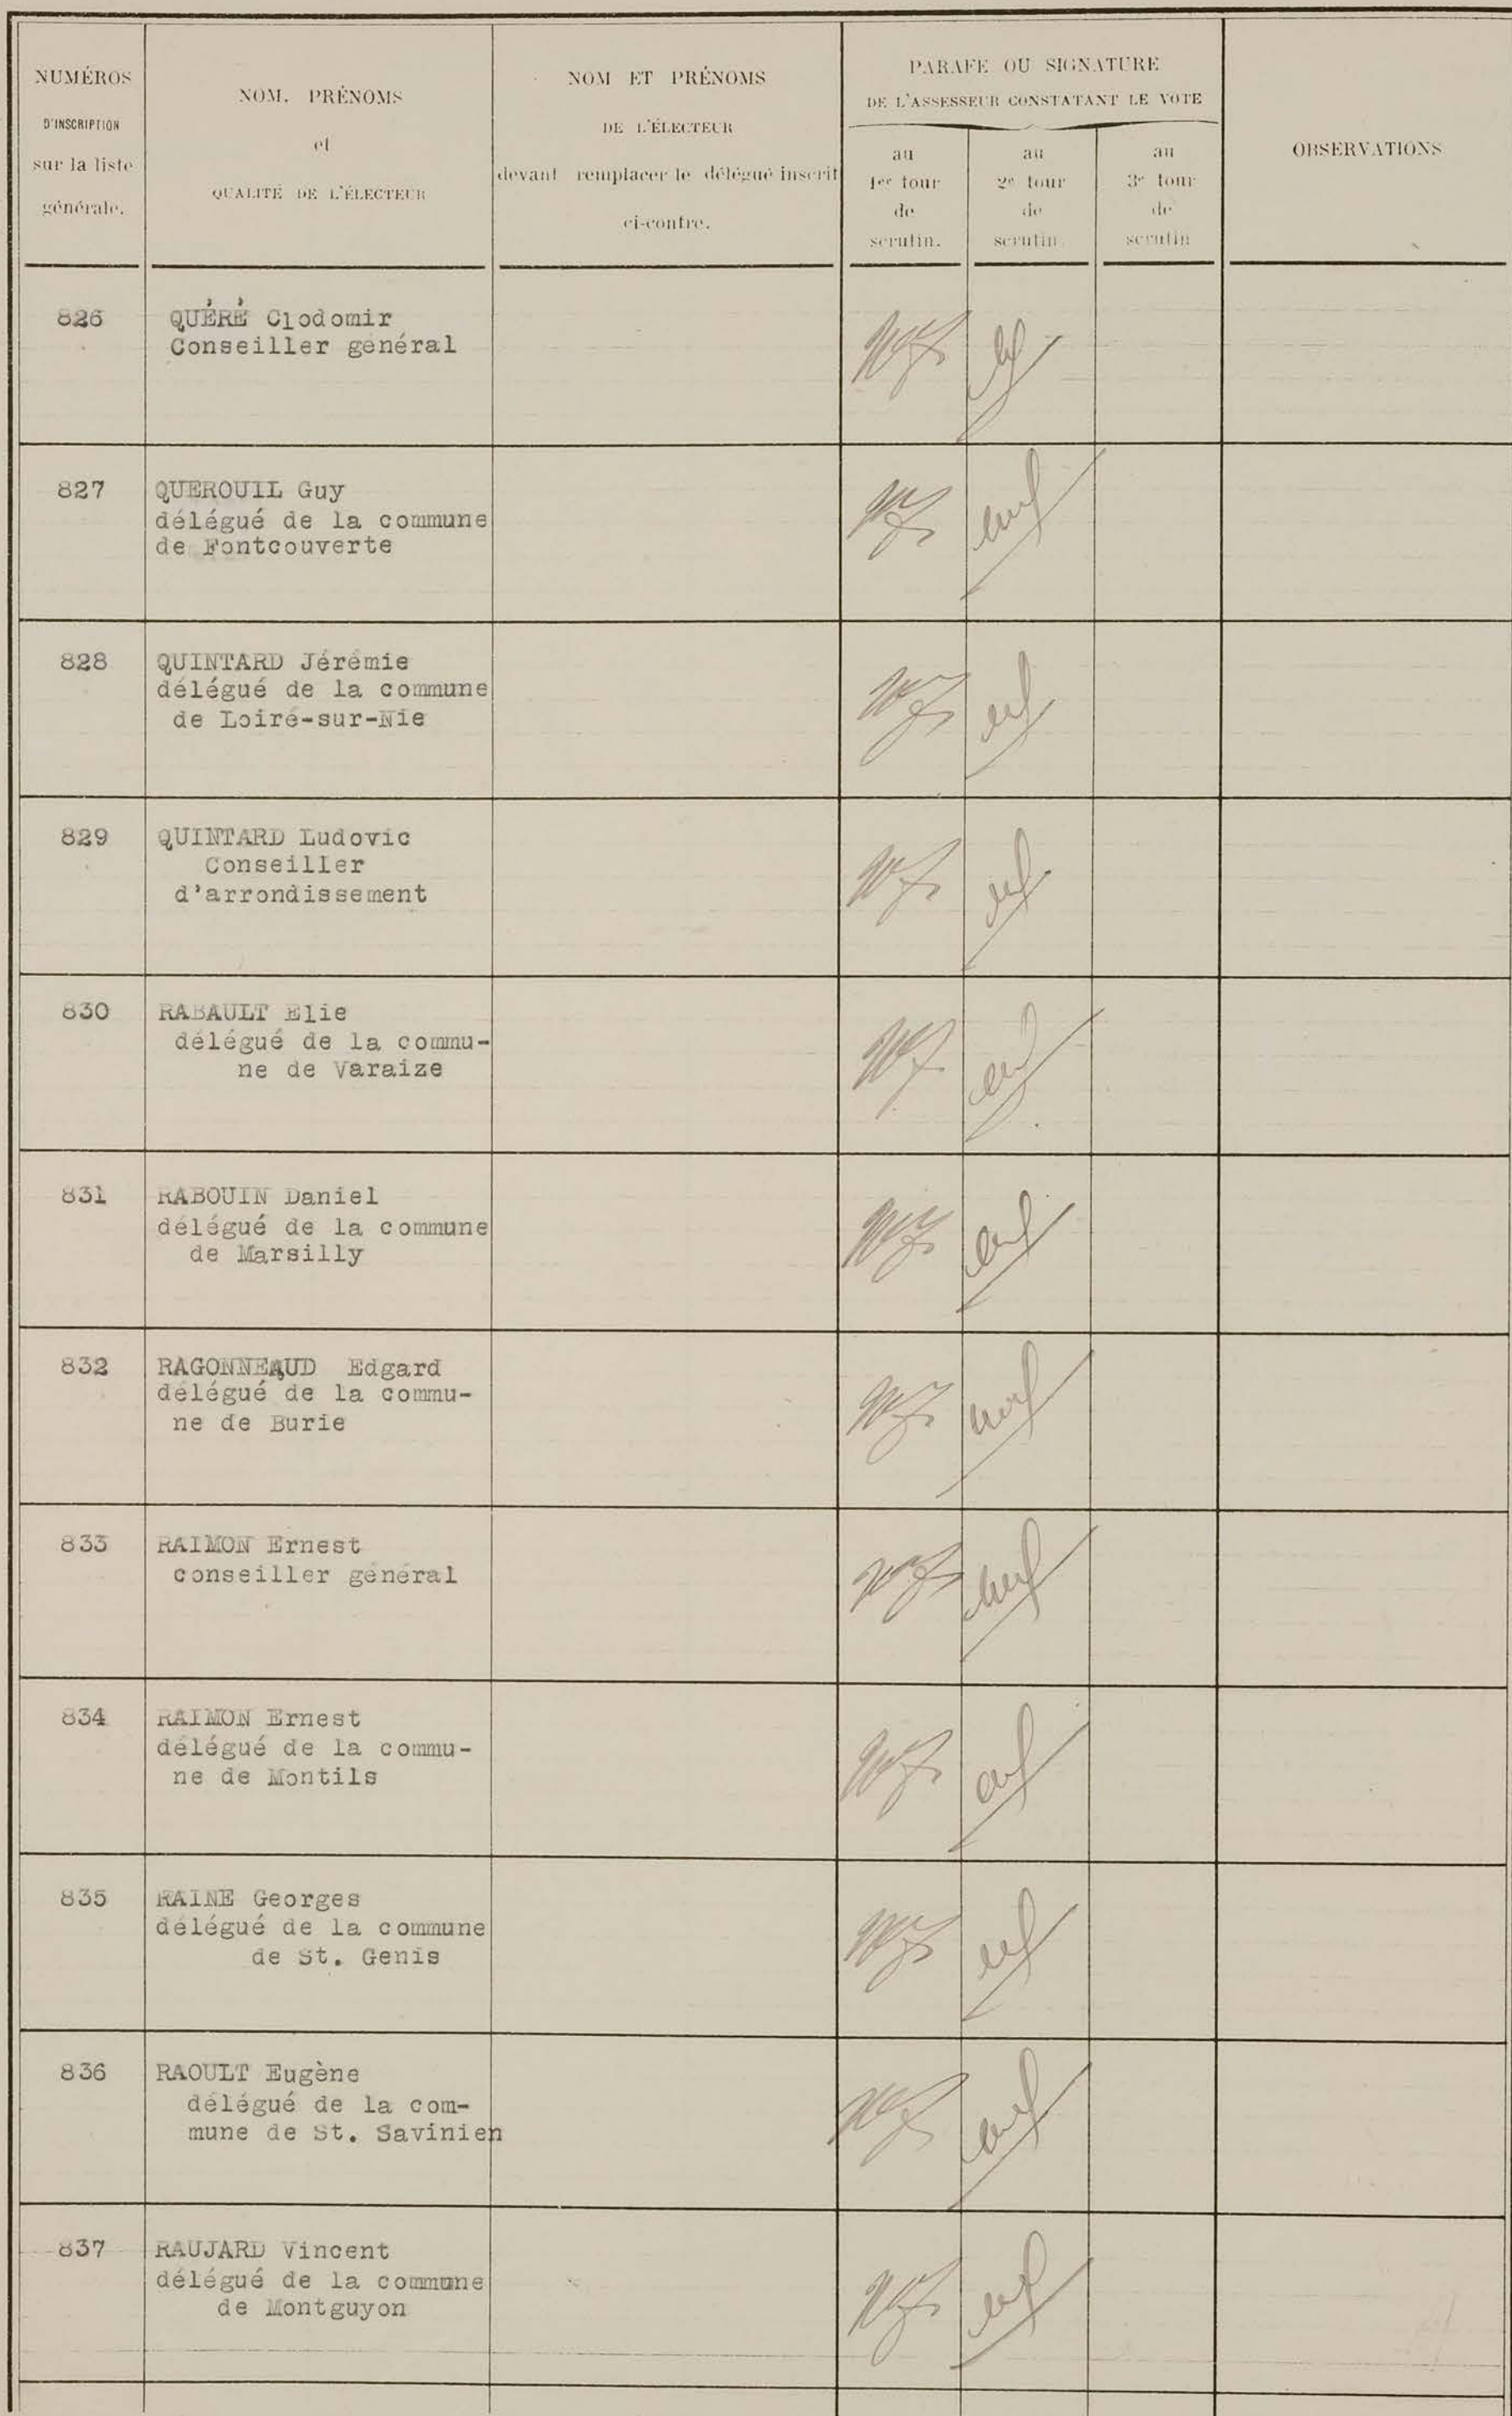 NUMÉROS
D'INSCRIPTION
sur la liste
générale.
NOM, PRÉNOMS
et
QUALITÉ DE L'ÉLECTEUR
NOM ET PRÉNOMS
DE L'ÉLECTEUR
devant remplacer le délégué inscrit
ci-contre.
PARAFE OU SIGNATURE
DE L'ASSESSEUR CONSTATANT LE VOTE
au
1er tour
de
scrutin.
au
2e tour
de
scrutin.
au
3e tour
de
scrutin
OBSERVATIONS
826
QUÉRÉ Clodomir
Conseiller général
827
QUEROUIL Guy
délégué de la commune
de Fontcouverte
828
QUINTARD Jérémie
délégué de la commune
de Loiré-sur-Nie
829
QUINTARD Ludovic
Conseiller
d'arrondissement
830
RABAULT Elie
délégué de la commu-
ne de Varaize
831
RABOUIN Daniel
délégué de la commune
de Marsilly
832
RAGONNEAUD Edgard
délégué de la commu-
ne de Burie
833
RAIMON Ernest
conseiller général
834
RAIMON Ernest
délégué de la commu-
ne de Montils
835
RAINE Georges
délégué de la commune
de St. Genis
836
RAOULT Eugène
délégué de la com-
mune de St. Savinien
837
RAUJARD Vincent
délégué de la commune
de Montguyon